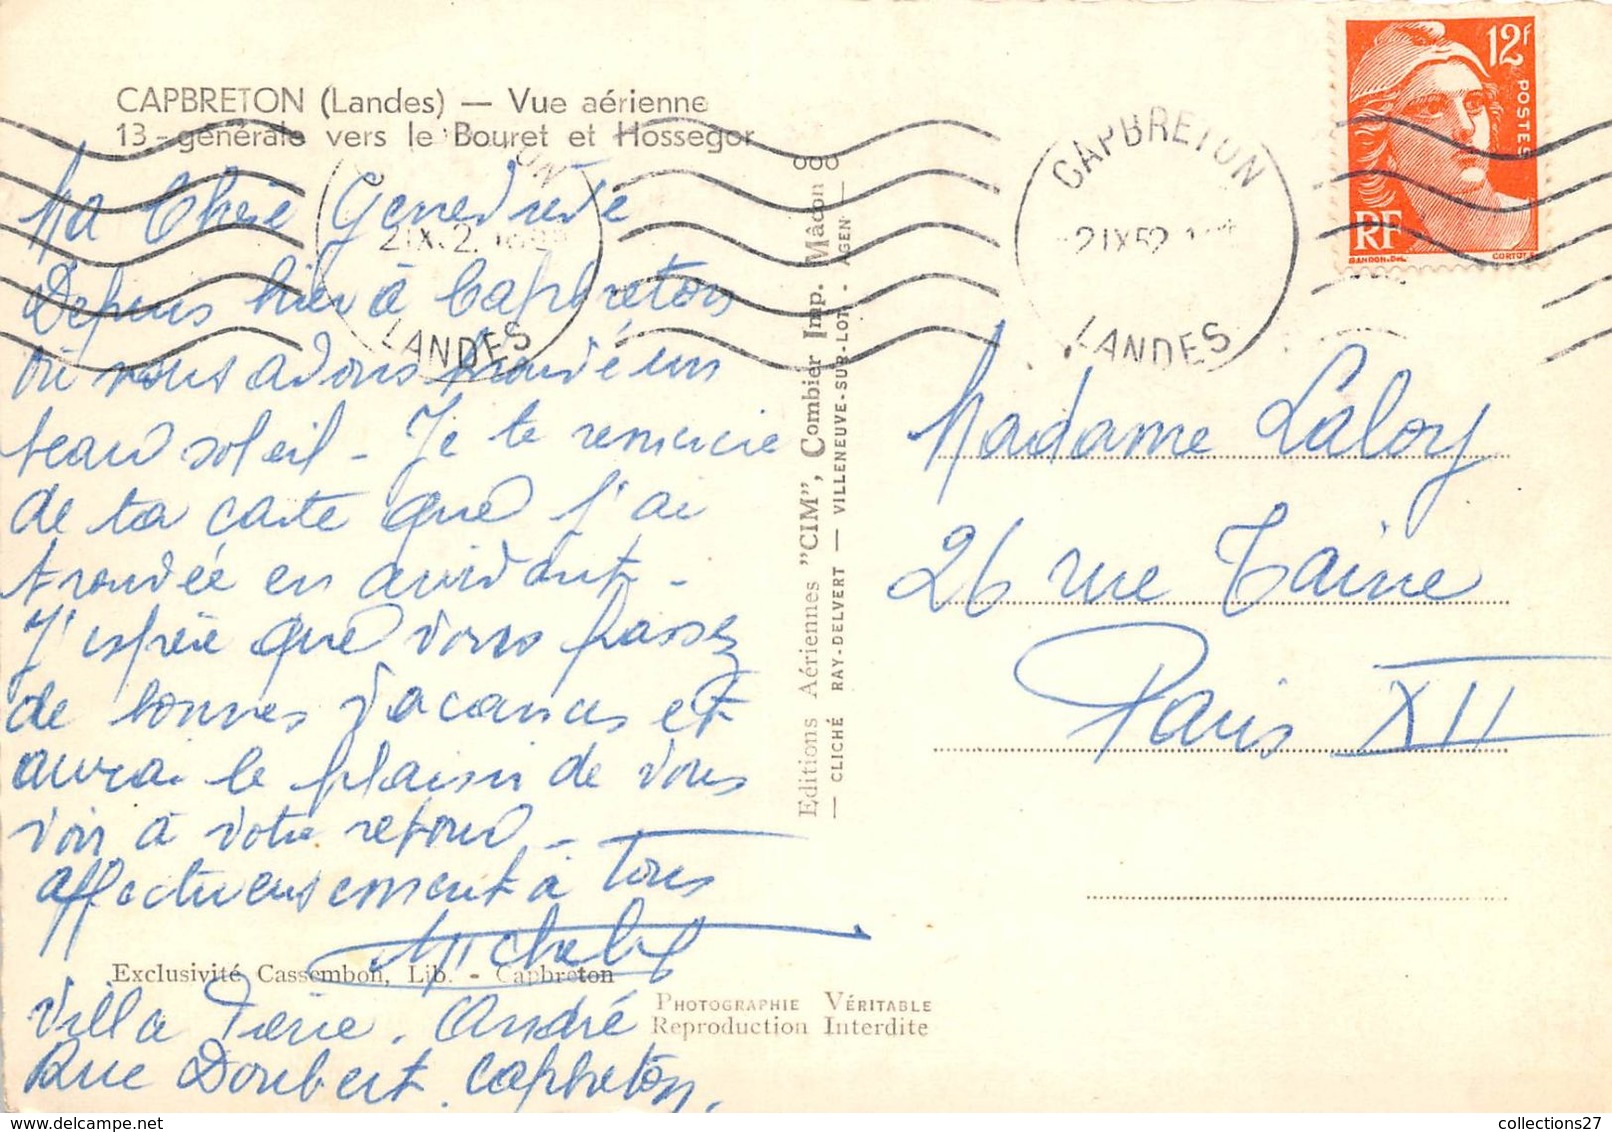 CAPBRETON (Landes) — Vue aérienne
13 - générale vers le Bouret et Hossegor
Ma Chère Geneviève
Depuis hier à Capbreton
où nous avons trouvé un
beau soleil - Je te remercie
de ta carte que j'ai
trouvée en arrivant -
J'espère que vous passez
de bonnes vacances et
aurai le plaisir de vous
voir à votre retour -
affectueusement à Tous
Michel
Exclusivité Cassembon, Lib. - Capbreton
Villa Pierre. André
Rue Doubert. Capbreton.
PHOTOGRAPHIE VÉRITABLE
Reproduction Interdite
Editions Aériennes "CIM", Combier Imp. Mâcon
— CLICHÉ RAY-DELVERT — VILLENEUVE-SUR-LOT - AGEN —
CAPBRETON
2 IX 52
LANDES
LANDES
12F
POSTES
RF
GANDON.DEL.
CORTOT
Madame Laloy
26 rue Taine
Paris XII
collections27